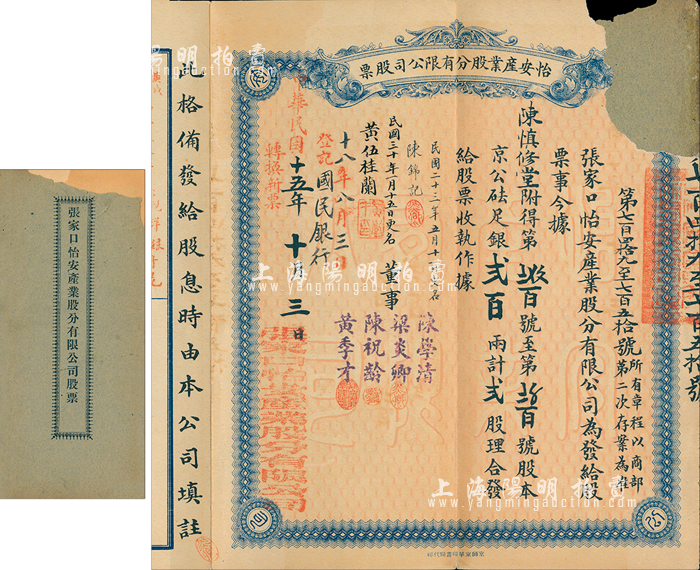 怡安產業股分有限公司股票
張家口怡安產業股分有限公司為發給股
票事今據
陳慎修堂附得第
號至第
號股本
京公砝足銀貳百兩計貳股理合發
給股票收執作據
所有章程以商部
第二次存案為准
民國二十二年五月十
陳錦記
民國三十年八月十五日更名
黃伍桂蘭
董事
陳學清
梁炎卿
陳祝齡
黃季才
十八年八月三日
登記國民銀行
轉換新票
中華民國十五年十月三日
張家口怡安產業股分有限公司
此格備發給股息時由本公司填註
張家口怡安產業股分有限公司股票
上海陽明拍賣
www.yangmingauction.com